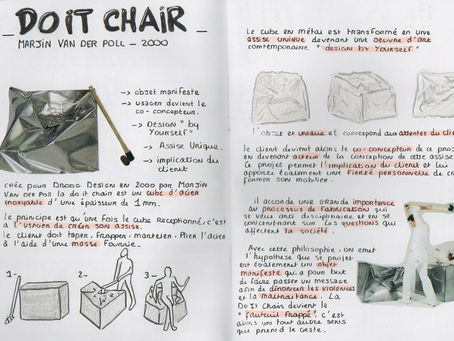 _ DO IT CHAIR _
MARJIN VAN DER POLL - 2000
→ objet manifeste
→ usager devient le
co-concepteur.
→ DESIGN "by
Yourself"
→ Assise Unique.
→ implication du
client
CRÉE pour DROOG Design en 2000 par MARJIN
Van der Poll la do it chair est un cube d'acier
inoxyable d'une épaisseur de 1 mm.
Le principe est qu'une fois le cube réceptionné, c'est
à l'usager de créer son assise.
le client doit taper, frapper, marteler, Plier l'acier
à l'aide d'une masse fournie.
1-
2-
3-
Le cube en métal est transformé en une
assise unique devenant une oeuvre d'art
contemporaine "design by Yourself"
l'objet est unique et correspond aux attentes du clie
le client devient alors le co-concepteur de ce pro
en devenant acteur de la conception de cette assise
Ce projet permet l'implication du client et lui
apporte également une fierté personnelle de cr
former son mobilier.
il accorde une grande importance
au processus de fabrication qui
se veut anti disciplinaire et en se
concentrant sur les questions qui
affectent la société.
Avec cette philosophie, on émet
l'hypothèse que ce projet
est également un objet
manifeste qui a pour but
de faire passer un message
afin de dénoncer les violences
et la maltraitance. La
Do It Chair devient le
"fauteuil frappé". c'est
alors un tout autre sens
que prend le geste.